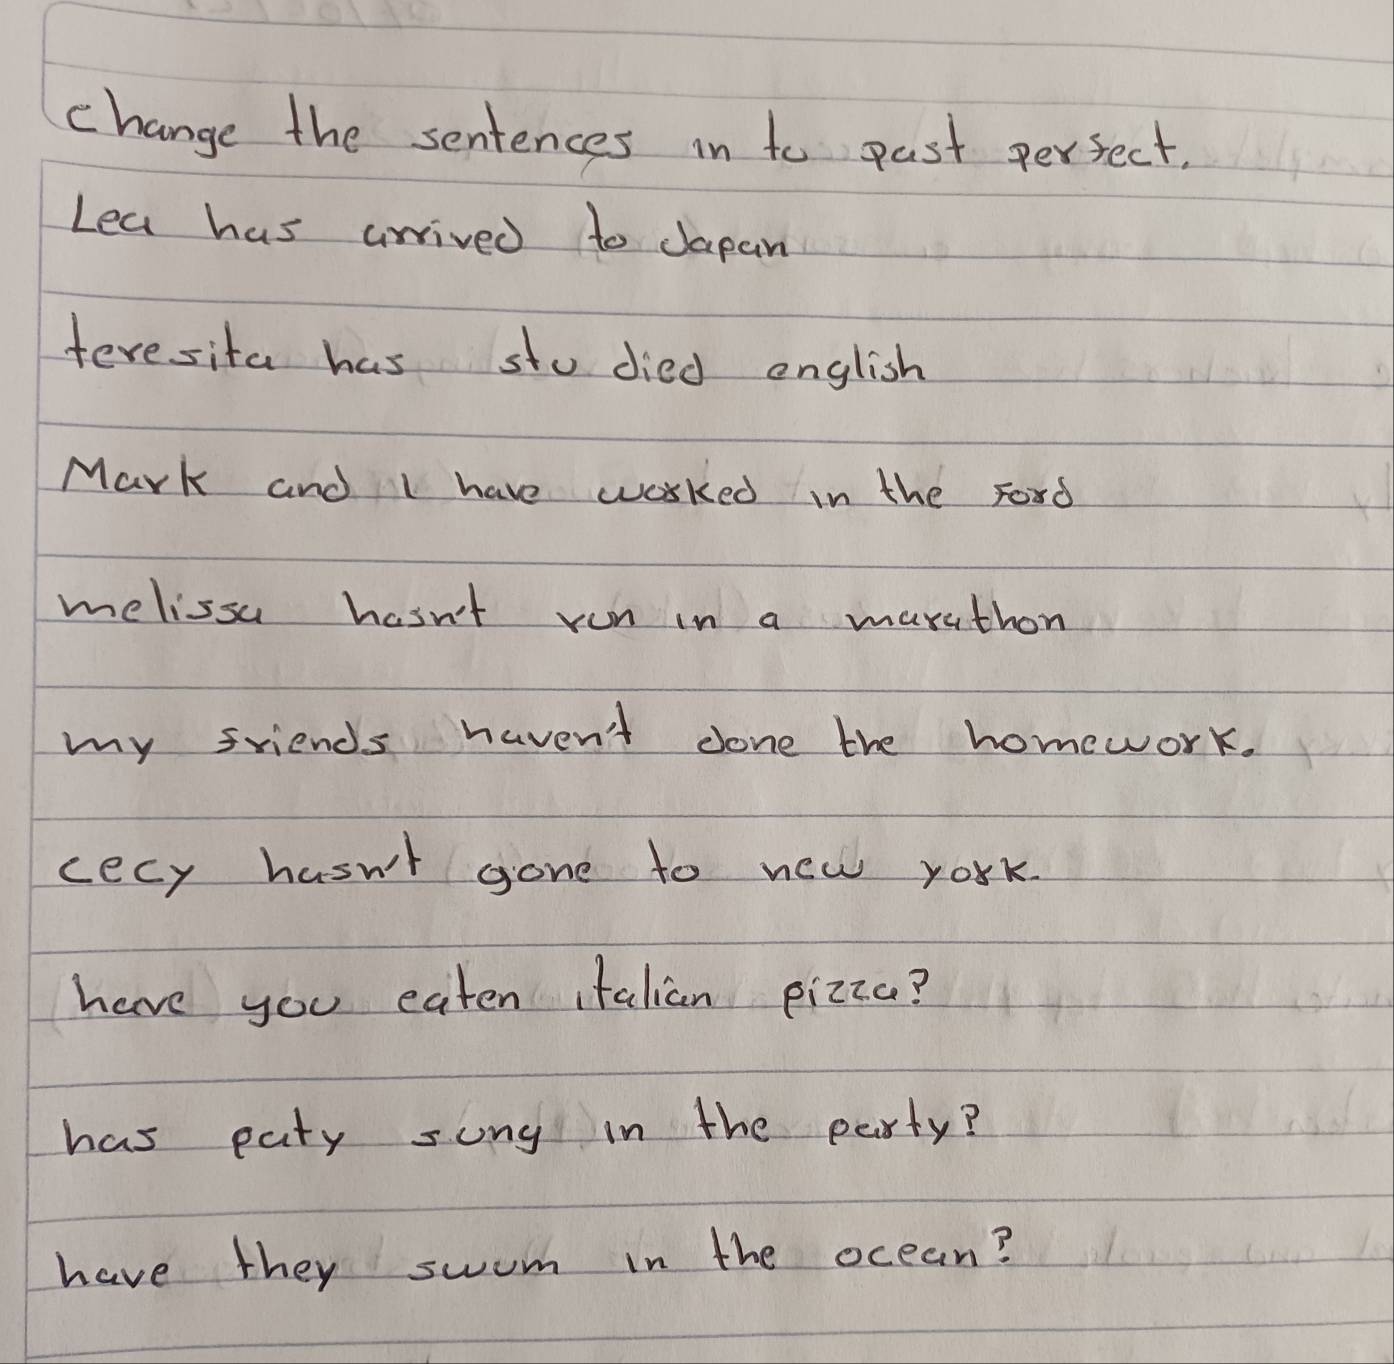 change the sentences in to past perfect.
Lea has arrived to Japan
teresita has studied english
Mark and I have worked in the Ford
melissa hasn't run in a marathon
my friends haven't done the homework.
cecy hasn't gone to new york.
have you eaten italian pizza?
has paty sung in the party?
have they swum in the ocean?